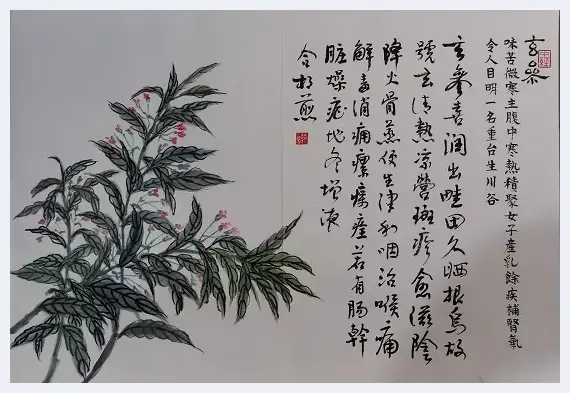 玄參
味苦微寒主腹中寒熱積聚女子產乳餘疾補腎氣
令人目明一名重台生川谷
玄參喜潤出畦田久晒根烏故
號玄清熱涼營斑疹愈滋陰
降火骨蒸生津利咽治喉痛
解毒消痈瘰癧痊若有腸幹
脏燥症地冬增液
合相煎